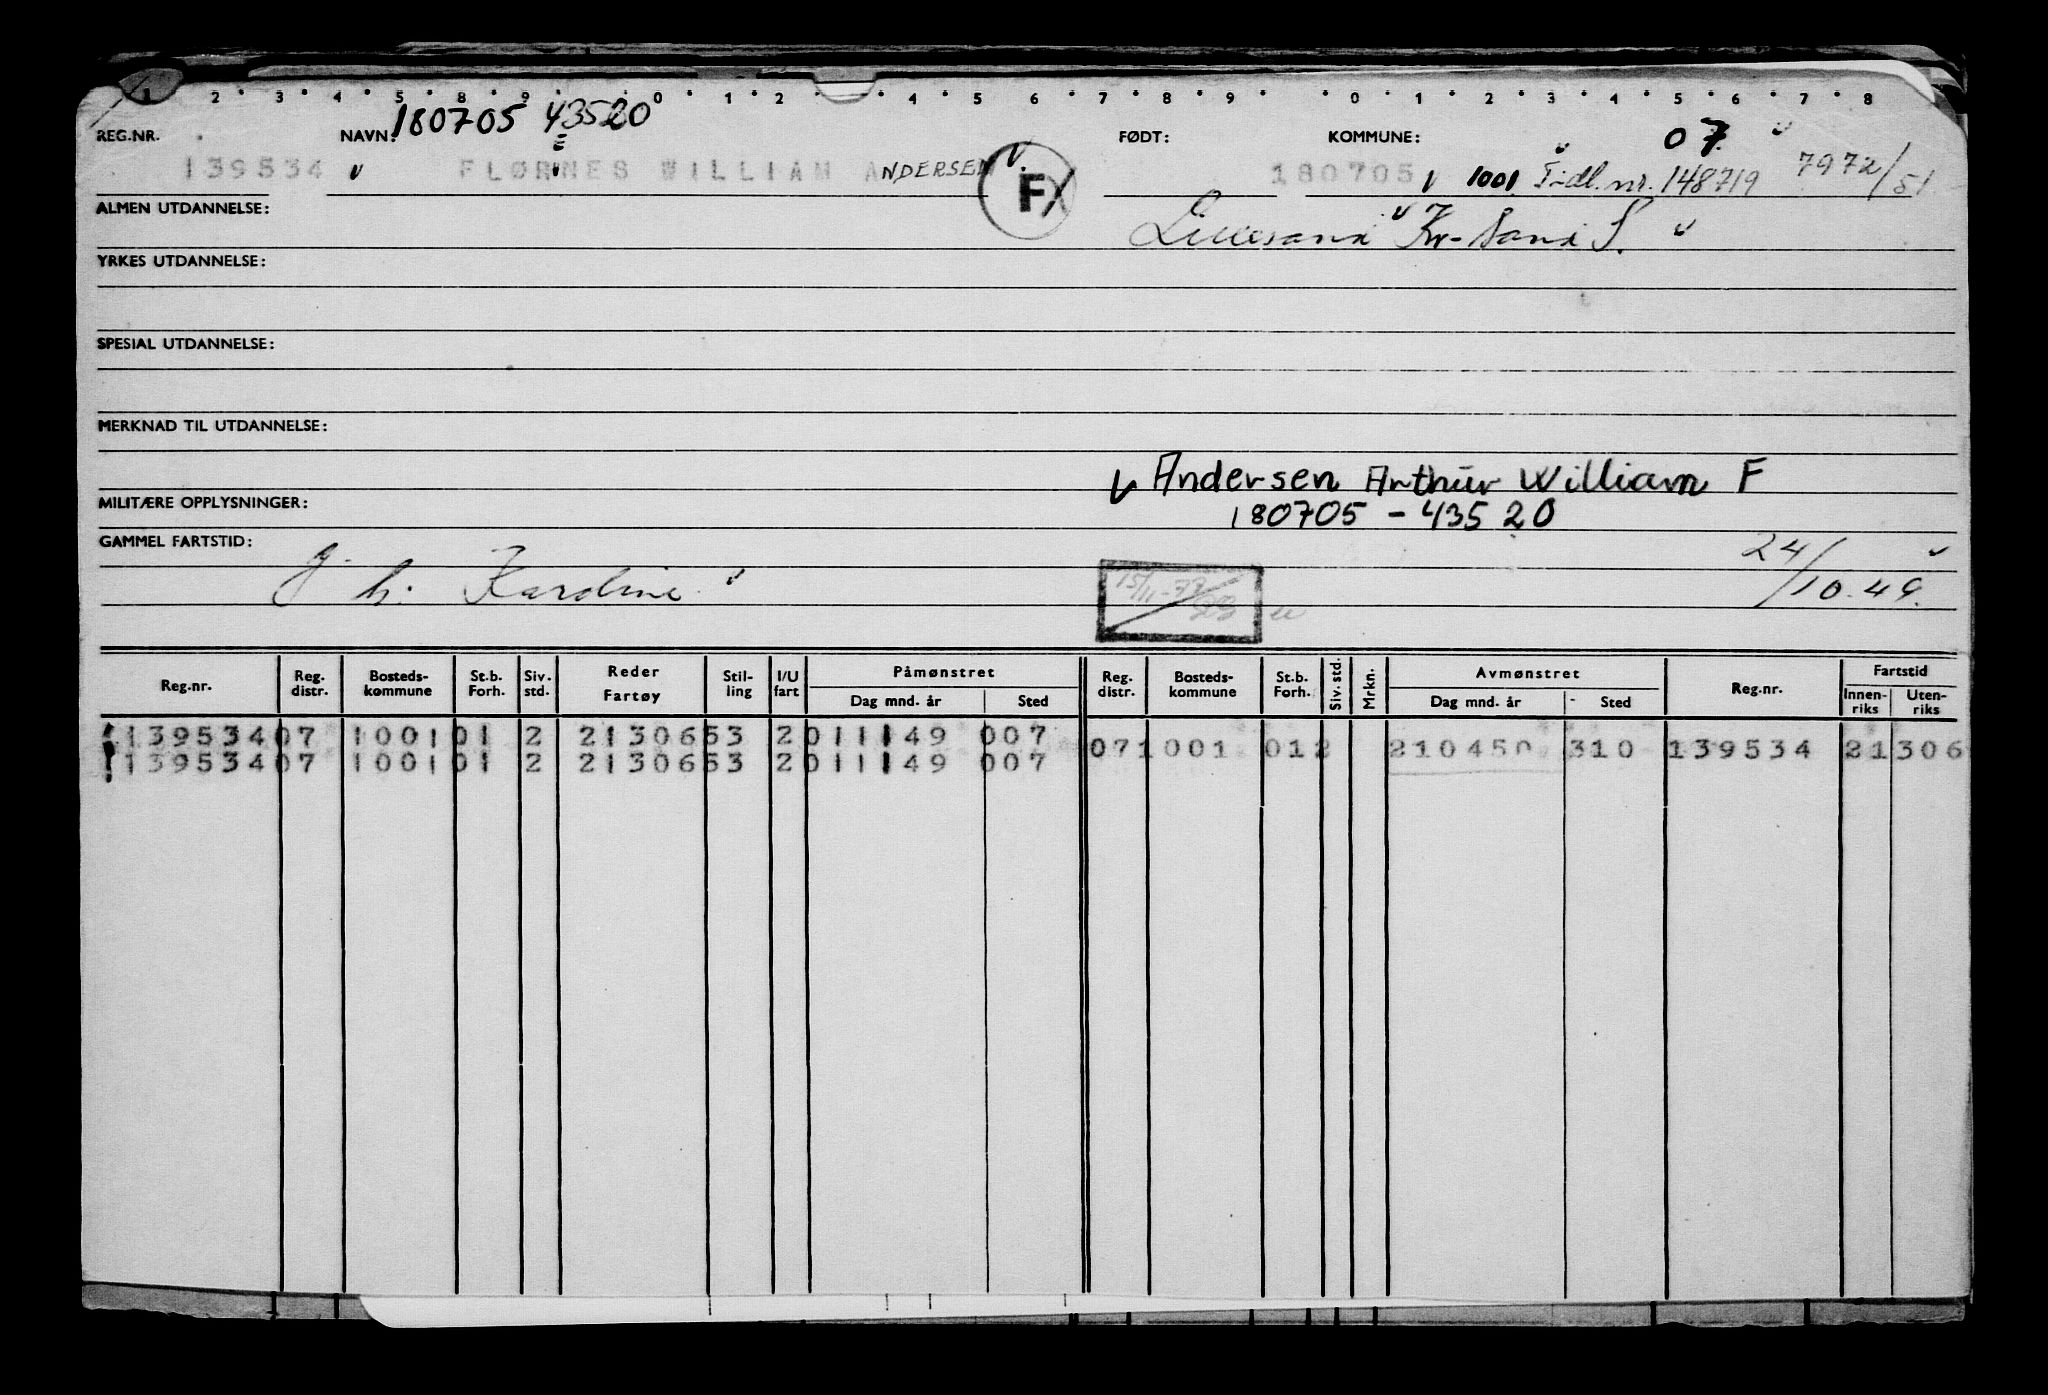 1 2 3 4 5 8 9 0 1 2 4 5 6 7 8 9 0 1 2 3 4 5 6 7 8
180705 43520
REG.NR. NAVN: FØDT: KOMMUNE: 07
139534 FLØRNES WILLIAM ANDERSEN F 180705 1001 Tidl. nr. 148719 7972/51
ALMEN UTDANNELSE: Lillesand Kr-Sand S.
YRKES UTDANNELSE:
SPESIAL UTDANNELSE:
MERKNAD TIL UTDANNELSE:
Andersen Arthur William F
MILITÆRE OPPLYSNINGER: 180705 - 43520
GAMMEL FARTSTID: 24/10.49.
h. Karoline
15/11-72
Reg.nr. Reg. distr. Bosteds-kommune St.b. Forh. Siv. std. Reder Fartøy Stil-ling I/U fart Påmønstret Dag mnd. år Sted Reg. distr. Bosteds-kommune St.b. Forh. Siv. std. Mrkn. Avmønstret Dag mnd. år - Sted Reg.nr. Fartstid Innen-riks Uten-riks
139534 07 1001 01 2 21306 53 2 011149 007
139534 07 1001 01 2 21306 53 2 011149 007 07 1001 01 2 210450 310 139534 21306